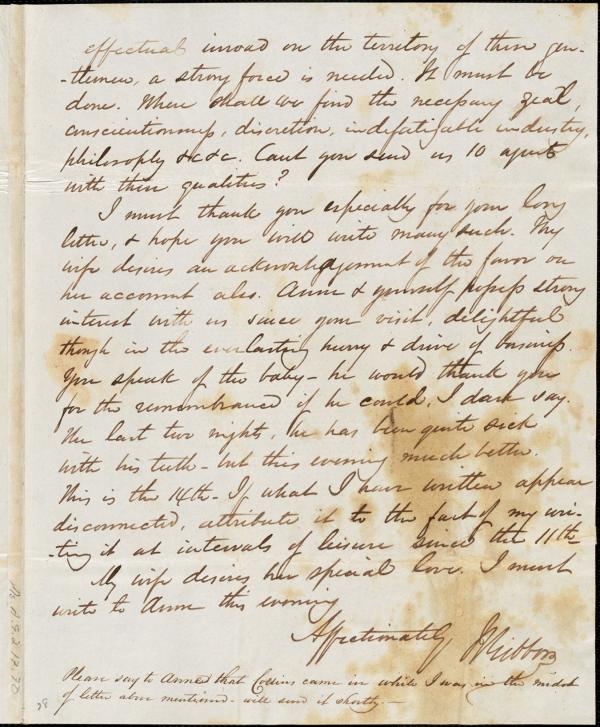 effectual inroad on the territory of these gen-
-tlemen, a strong force is needed. It must be
done. Where shall we find the necessary zeal,
conscientiousness, discretion, indefatigable industry,
philosophy &c &c. Cant you send us 10 agents
with these qualities?
I must thank you especially for your long
letter, & hope you will write many such. My
wife desires an acknowledgement of the favor on
her account also. Anne & yourself possess strong
interest with us since your visit, delightful
though in the everlasting hurry & drive of business.
You speak of the baby - he would thank you
for the remembrance if he could, I dare say.
The last two nights, he has been quite sick
with his teeth - but this evening much better.
This is the 14th - If what I have written appear
disconnected, attribute it to the fact of my wri-
-ting it at intervals of leisure since the 11th
My wife desires her special love. I must
write to Anne this evening
Affectionately JS Gibbons
Please say to Anne that Collins came in while I was in the midst
of letter above mentioned - will send it shortly -